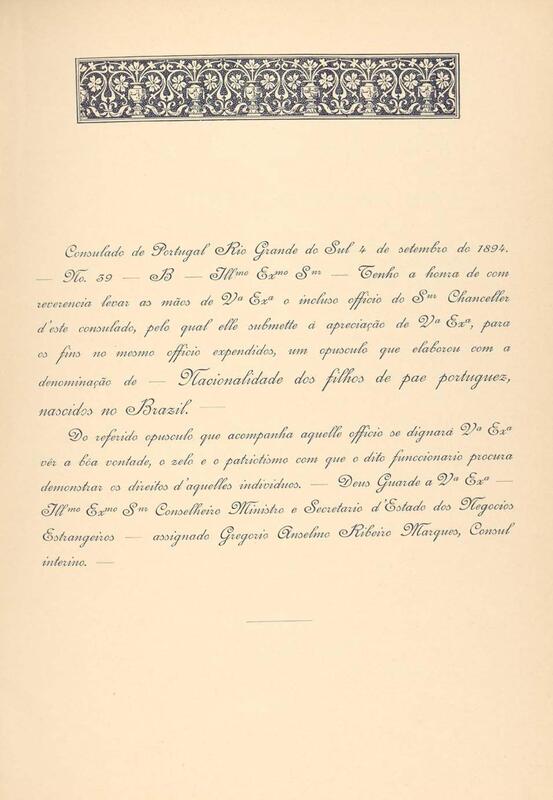 Consulado de Portugal Rio Grande do Sul 4 de setembro de 1894.
— No. 39 — B — Illmo Exmo Snr — Tenho a honra de com
reverencia levar as mãos de Va Exa o incluso officio do Snr Chanceller
d'este consulado, pelo qual elle submette á apreciação de Va Exa, para
os fins no mesmo officio expendidos, um opusculo que elaborou com a
denominação de — Nacionalidade dos filhos de pae portuguez,
nascidos no Brazil. —
Do referido opusculo que acompanha aquelle officio se dignará Va Exa
vêr a bôa vontade, o zelo e o patriotismo com que o dito funccionario procura
demonstrar os direitos d'aquelles individuos. — Deus Guarde a Va Exa —
Illmo Exmo Snr Conselheiro Ministro e Secretario d'Estado dos Negocios
Estrangeiros — assignado Gregorio Anselmo Ribeiro Marques, Consul
interino. —